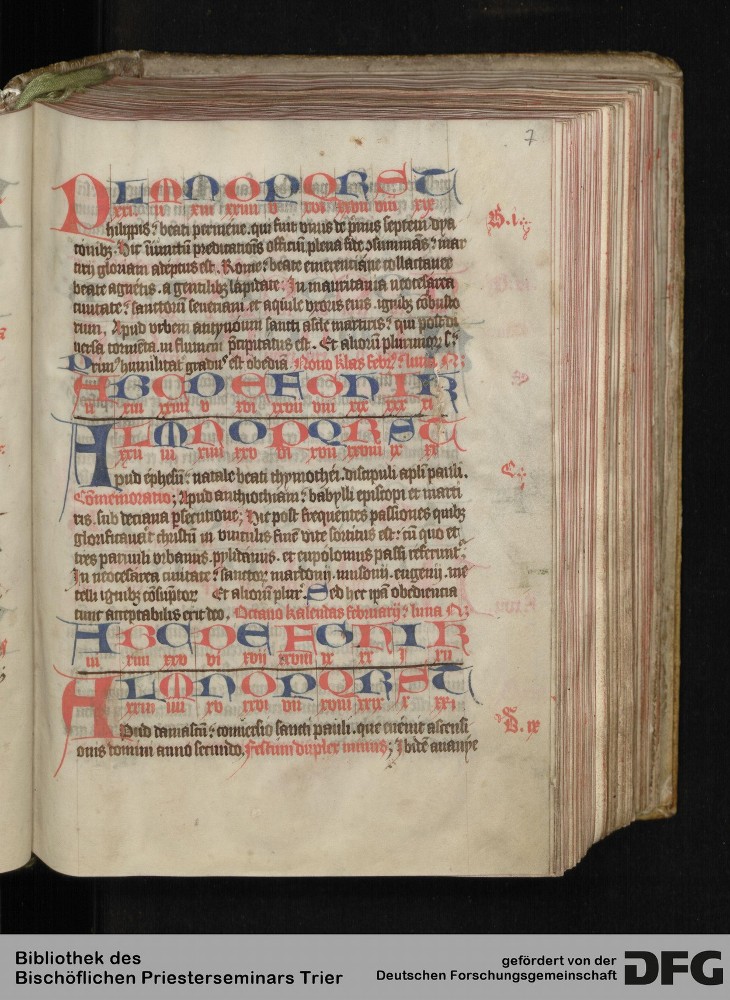 7
L M N O P Q R S T
xxi iii xiii xxiiii v xvi xxvii viii xix
Philippis: beati permene. qui fuit vnus de p̄mis septem dya
conibꝫ. Hic officiū plena fide ɔsummās: mar
tirij gloriam adeptus est. Rome: beate emerenciane collactanee
beate agnetis. a gentilibꝫ lapidate: In mauritania neocesarea
ciuitate: sanctorū seueriani. et aquile vxoris eius. ignibꝫ ɔbusto
rum. Apud vrbem antynoum sancti ascle martiris: qui post di
uersa tormēta. in flumen p̄cipitatus est. Et alioruȝ plurimoꝝ
Prim⁹ humilitat grad⁹ est obediā. Nono klas febrꝫ: luna. N:
A B C D E F G H I K
ii xiii xxiiii v xvi xxvii viii xix xxx xi
L M N O P Q R S T
xxii iii xiiii xxv vi xvii xxviii ix xx
B. i.
Apud ephesū: natale beati thymothei. discipuli apli pauli.
C.
Cōmemoratio; Apud anthiochiam: babylli episcopi et marti
ris. sub deciana ꝑsecutione; Hic post frequentes passiones quibꝫ
glorificauit christū in vinculis finē vite sortitus est: cū quo et
tres paruuli vrbanus. pylidanus. et eupolomius passi referunt:
In neocesarea ciuitate: sanctoꝝ mardonij. musonij. eugenij. me
telli ignibꝫ ɔsūptoꝝ Et alioruȝ plur. Sed hec ip̄a obediencia
tunc acceptabilis erit deo. Octauo kalendas februarij: luna N:
A B C D E F G H I K
iii xiiii xxv vi xvii xxviii ix xx i xii
L M N O P Q R S T
xxiii iiii xv xxvi vii xviii xxix x xxi
B. ix
Apud damascū: conuersio sancti pauli. que euenit ascensi
onis domini anno secundo. Festum duplex minus; Ibidē ananye
Bibliothek des
Bischöflichen Priesterseminars Trier
gefördert von der
Deutschen Forschungsgemeinschaft
DFG